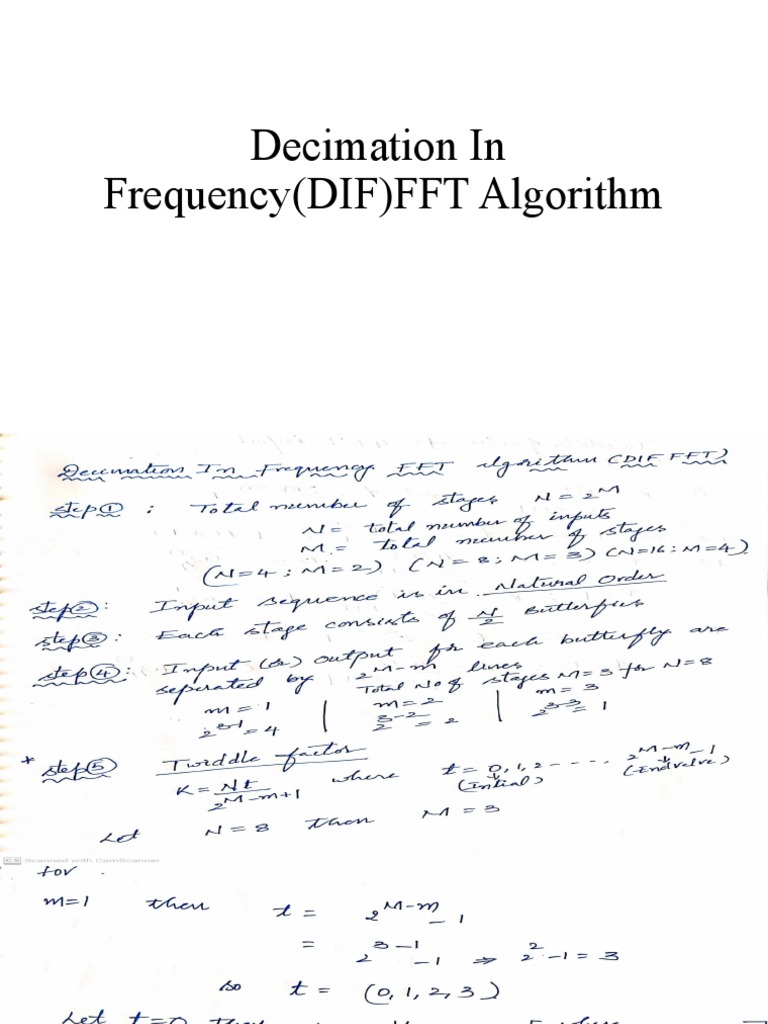 Decimation In
Frequency(DIF)FFT Algorithm
Decimation In Frequency FFT algorithm (DIF FFT)
step① : Total number of stages N = 2^M
N = total number of inputs
M = total number of stages
(N=4 ; M=2) (N=8 ; M=3) (N=16 : M=4)
step②: Input sequence is in Natural Order
step③: Each stage consists of N/2 Butterflies
step④: Input (or) output for each butterfly are
seperated by 2^M-m lines
Total No of stages M=3 for N=8
m=1 | m=2 | m=3
2^3-1=4 | 2^3-2=2 | 2^3-3=1
* step⑤ Twiddle factor
K = Nt/2^M-m+1 where t = 0, 1, 2 ---- 2^M-m-1
(Initial) (End value)
Let N=8 then M=3
CS Scanned with CamScanner
for
m=1 then t = 2^M-m -1
= 2^3-1 -1 ⇒ 2^2-1=3
so t = (0, 1, 2, 3)
Let t=0 then